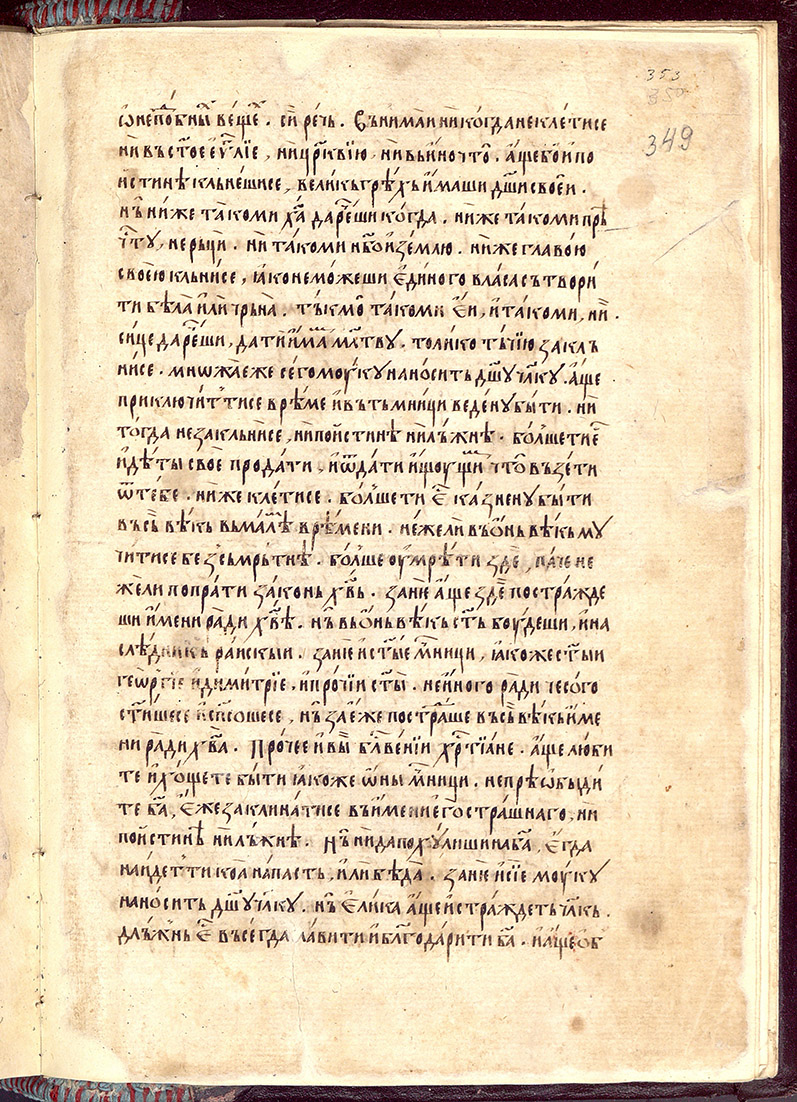 353
350
349
ѡ неподо́бныⷯ ве́щеⷯ . си́ рѣ́чь . Въни́маи ни́когда не кле́тисе
ни́ въ ст҃ое е҆ѵⷢ҇лїе , ни́ цр҃квїю , ни́ въ и҆́но что̀ . а҆́ще бо и҆ по
и҆́стинѣ кльне́шисе , вели́кь грѣ́хъ и҆́маши дш҃и свое́и .
нь ни́же та́ко ми х҃а даре́ши когда . ни́же та́ко ми прѣ
чⷭ҇ту , не рьци́ . ни́ та́ко ми нб҃о и҆ зе́млю . ни́же главо́ю
свое́ю кльни́се , ꙗ҆́ко не мо́жеши є҆ди́ного вла́са сътвори́
ти бѣ́ла и҆ли чрь́на . ты́кмо та́ко ми є҆́и , и҆ та́ко ми , ни́ .
си́це даре́ши , да́ти и҆́маⷨ мл҃тву . то́лико ты́чїю закль
ни́се . мнѡжае́ же се́го мо́уку нано́сить дш҃у чл҃ку . а҆́ще
приключи́т ти се врѣ́ме и҆ въ тьмни́ци веде́ну бы́ти . ни́
тогда́ не закльни́се , ни́ по и҆́стинѣ ни́ лъ́жнѣ . бо́лше ти е҆ⷭ҇
и҆ дѣ́ты своѐ прода́ти , и҆ ѿда́ти и҆́щоущиⷨ что̀ въ зе́ти
ѿ те́бе . ни́же кле́тисе . бо́лше ти є҆ⷭ҇ ка́зне́ну бы́ти
въ сь вѣ́кь въ ма́лѣ врѣ́мени . не́жели въ о҆́нь вѣ́кь му
чи́тисе бе́зсьмрь́тнѣ . бо́лше оу҆мрѣ́ти здѐ , па́че не
же́ли попра́ти зако́нь х҃вь . зане́ а҆́ще здѐ постра́жде
ши и҆́мени ра́ди х҃ва . нь въ о҆́нь вѣ́кь ст҃ь бо́удеши , и҆ на
слѣ́дникь ра́искыи . зане́ и҆ ст҃ые мⷱ҇ници , ꙗ҆́коже ст҃ыи
гео́ргїе и҆ ди́митрїе , и҆ про́чїи ст҃ы . не и҆́ного ра́ди чесо́го
ст҃ишесе и҆ сп҃сошесе , нь за е҆́же постра́ше въ сь вѣ́кь и҆́ме
ни ра́ди х҃ва . Про́чее и҆ вы̀ блⷭ҇ве́нїи хрⷭ҇тїа́не . а҆́ще лю́би
те и҆ хо́щете бы́ти ꙗ҆́коже о҆́ны мⷱ҇ници . не прѣѡби́ди
те б҃а , є҆́же заклина́тисе въ и҆́мени е҆го̀ стра́шнаго , ни́
по и҆́стинѣ ни́ лъ́жнѣ . Нь ни́ да поху́лиши на б҃а , є҆гда
на́идет ти коа̀ на́пасть , и҆́ли бѣ́да . зане́ и҆ сїѐ мо́уку
нано́сить дш҃у чл҃ку . нь є҆ли́ка а҆́ще и҆ стра́ждеть чл҃кь .
длъ́жнь є҆ⷭ҇ въсе́гда сла́вити и҆ благода́рити б҃а . и҆ а҆́ще об